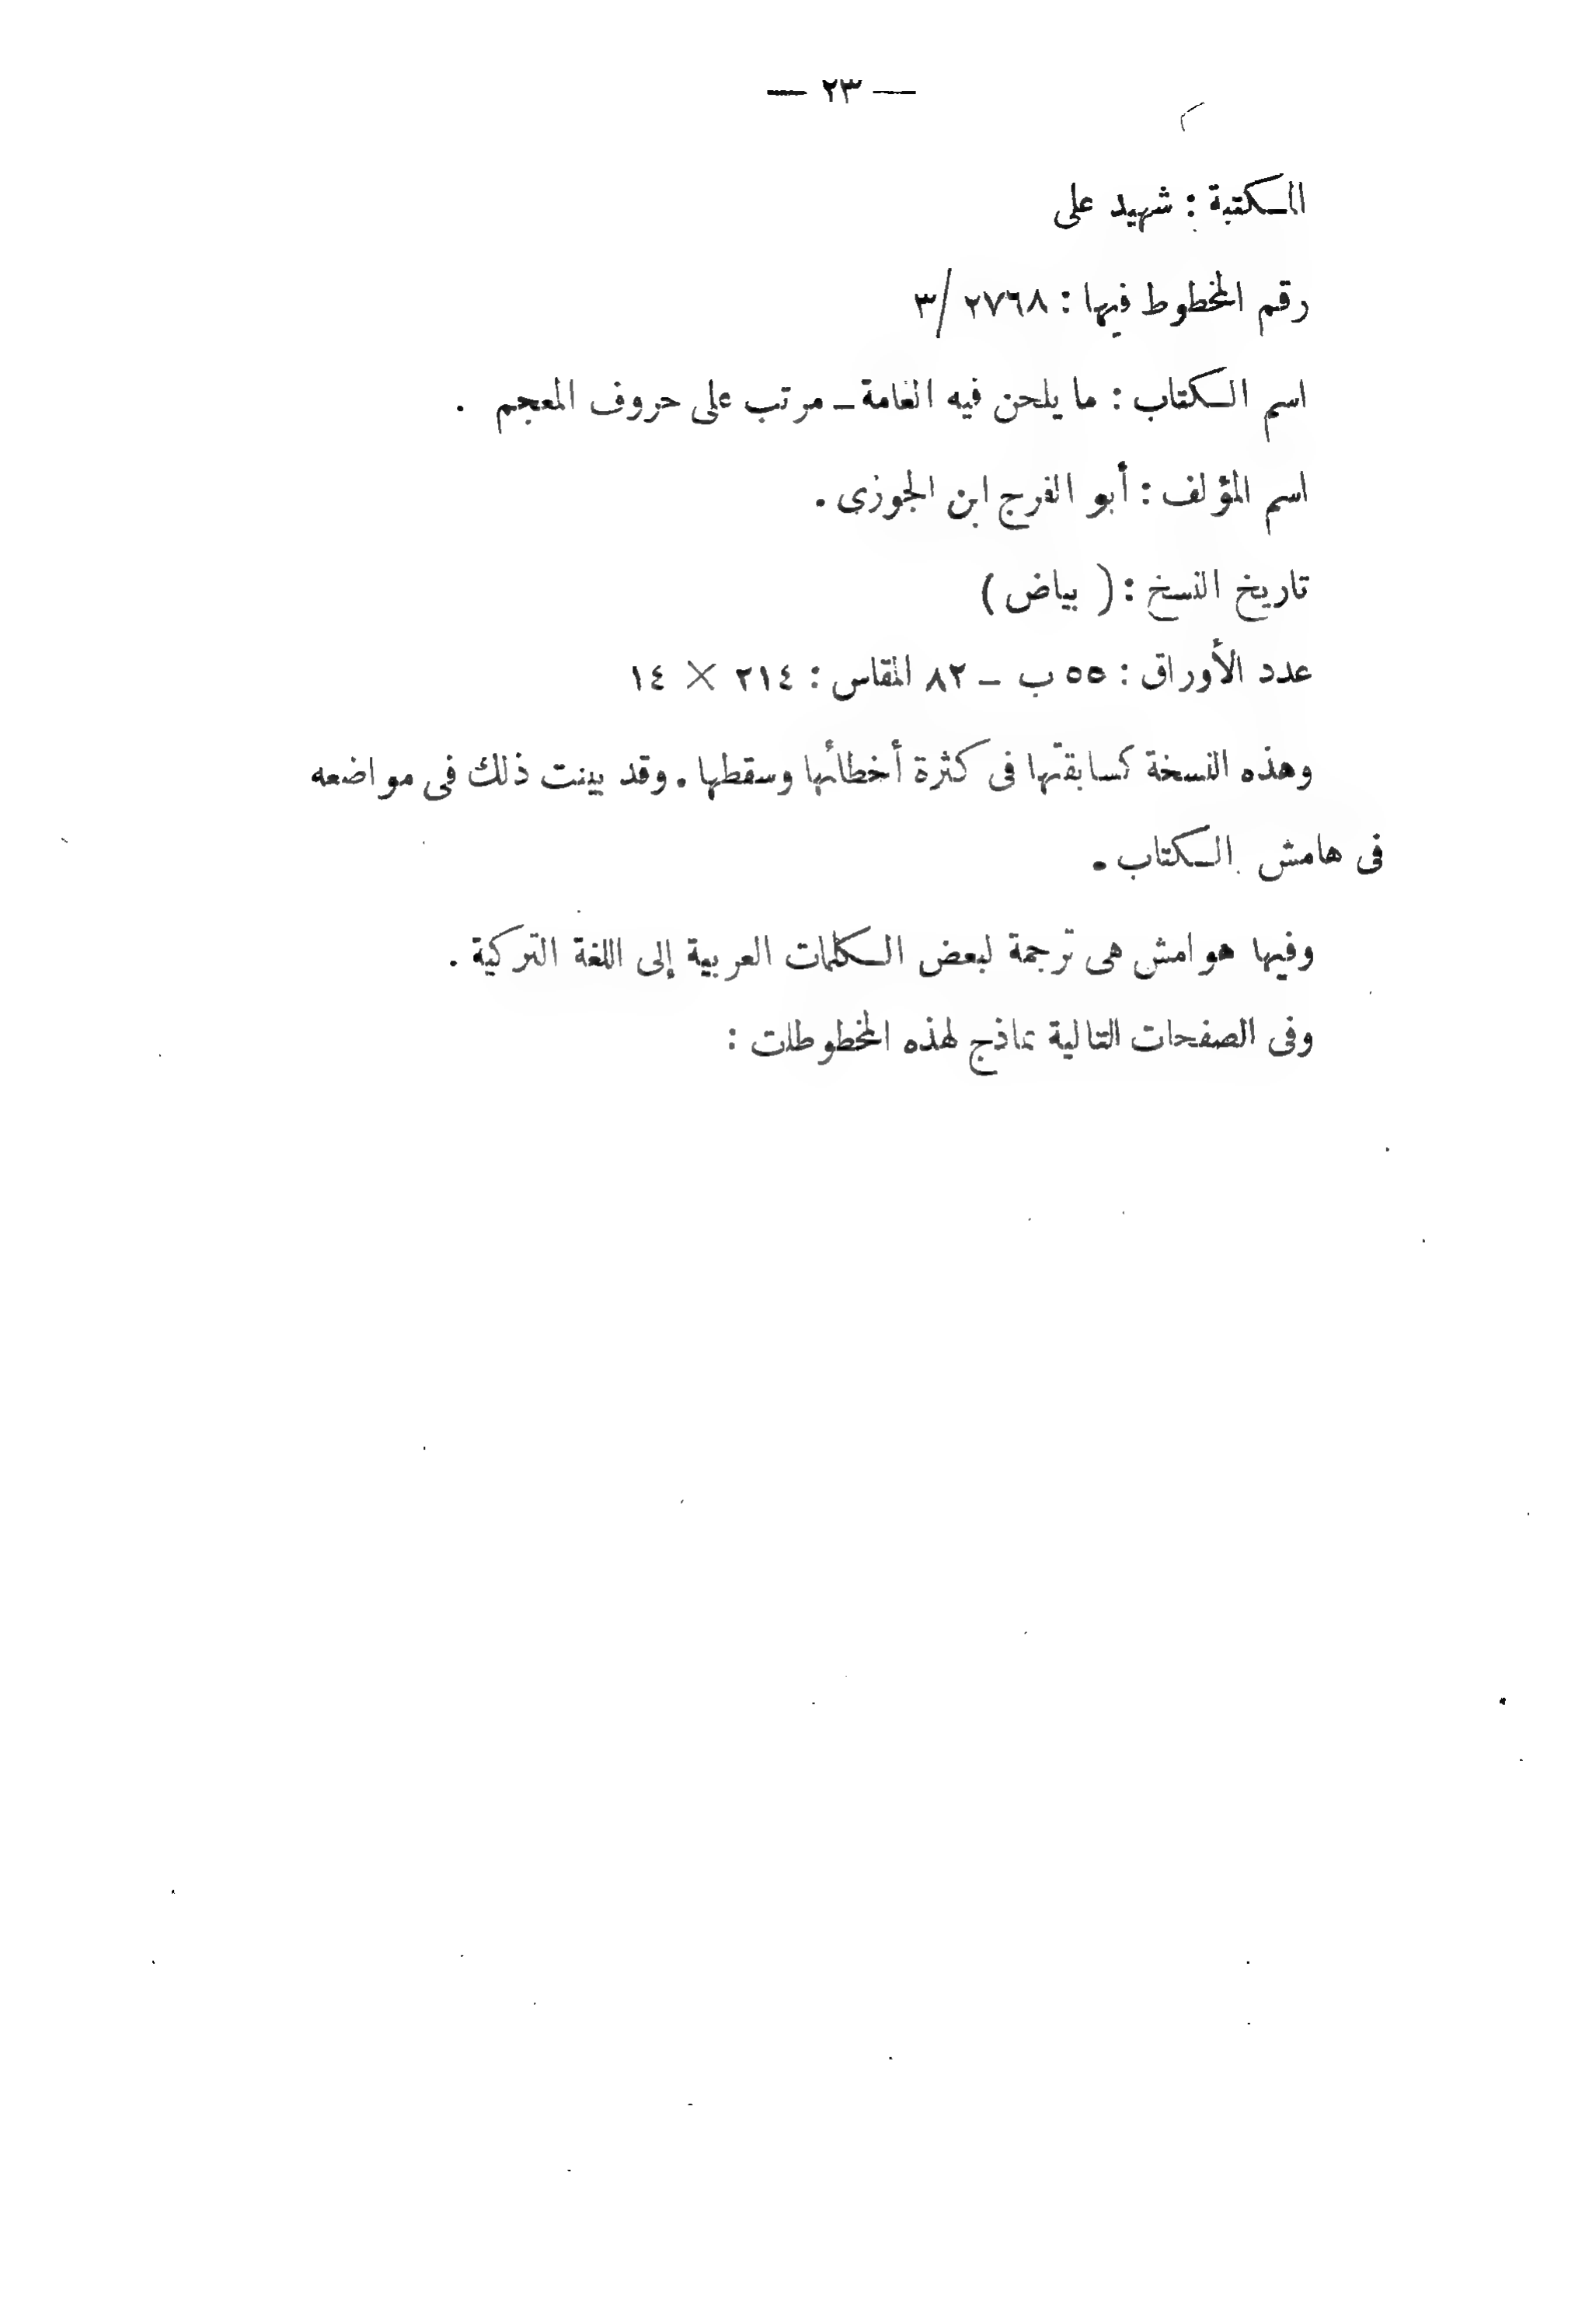 — ٢٣ —
المكتبة : شهيد على
رقم المخطوط فيها : ٢٧٦٨ /٣
اسم الكتاب : ما يلحن فيه العامة ـ مرتب على حروف المعجم .
اسم المؤلف : أبو الفرج ابن الجوزى .
تاريخ النسخ : ( بياض )
عدد الأوراق : ٥٥ ب ـ ٨٢ المقاس : ٢١٤ × ١٤
وهذه النسخة كسابقتها فى كثرة أخطائها وسقطها . وقد بينت ذلك فى مواضعه
فى هامش الكتاب .
وفيها هوامش هى ترجمة لبعض الكلمات العربية إلى اللغة التركية .
وفى الصفحات التالية نماذج لهذه المخطوطات :